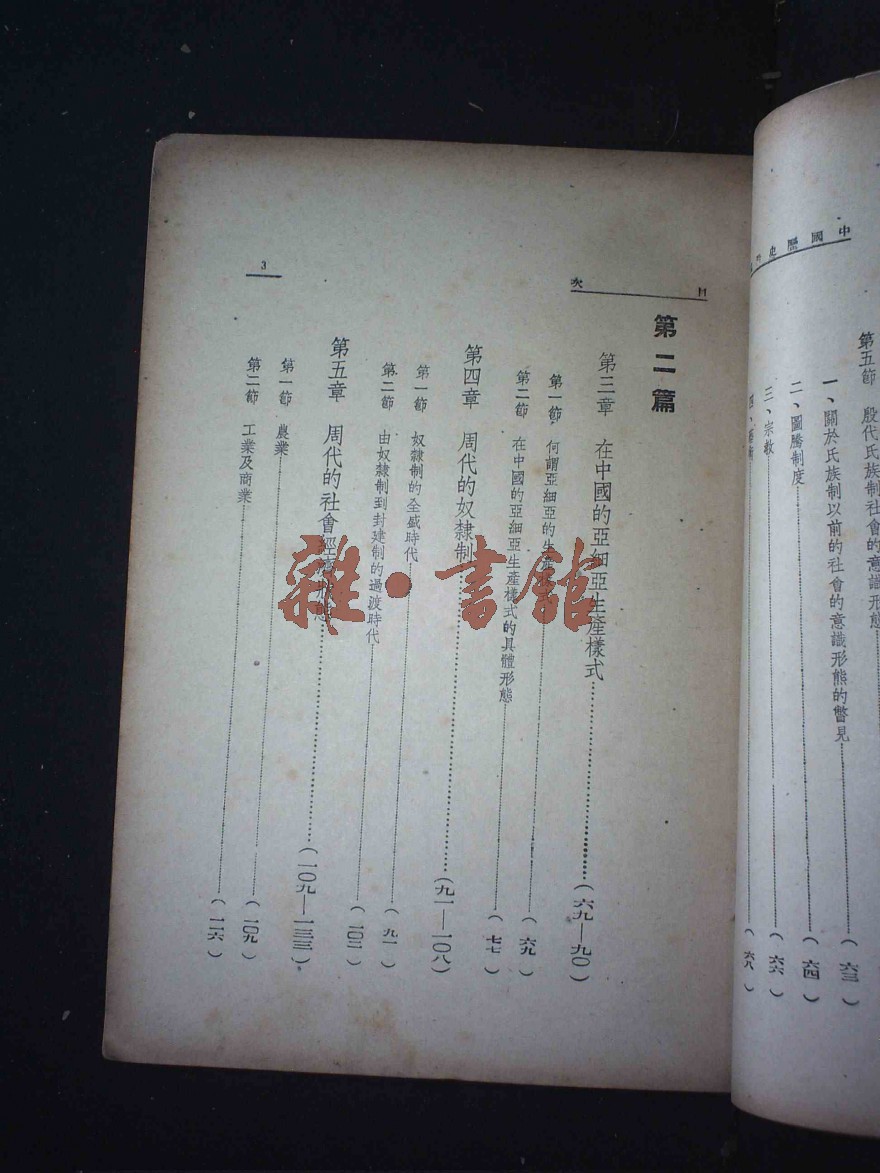 中國歷史
第五節　殷代氏族制社會的意識形態
一、關於氏族制以前的社會的意識形態的瞥見（六三）
二、圖騰制度（六四）
三、宗教（六六）
四、（六八）
目次
第二篇
第三章　在中國的亞細亞生產樣式（六九—九〇）
第一節　何謂亞細亞的生產（六九）
第二節　在中國的亞細亞生產樣式的具體形態（七七）
第四章　周代的奴隸制（九一—一〇八）
第一節　奴隸制的全盛時代（九一）
第二節　由奴隸制到封建制的過渡時代（一〇二）
第五章　周代的社會經濟形態（一〇九—一三三）
第一節　農業（一〇九）
第二節　工業及商業（一一六）
3
雜·書館